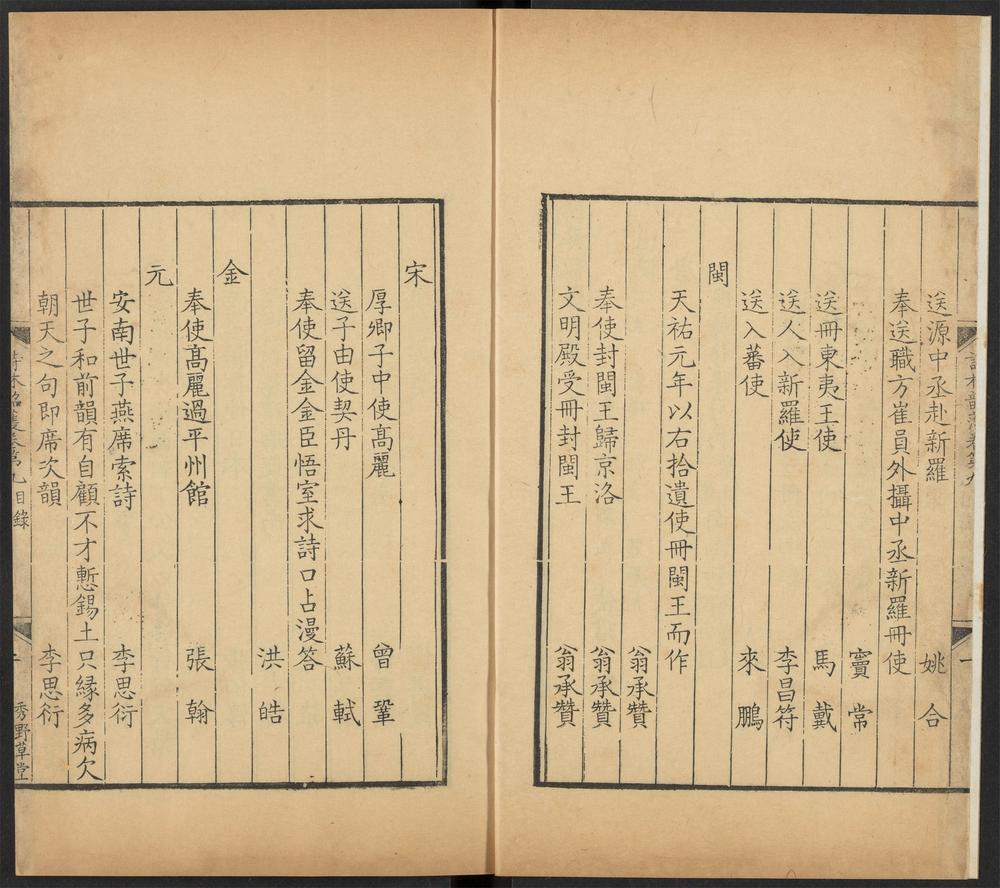 送源中丞赴新羅 姚合
奉送職方崔員外攝中丞新羅冊使
竇常
送冊東夷王使 馬戴
送人入新羅使 李昌符
送入蕃使 來鵬
閩
天祐元年以右拾遺使冊閩王而作
翁承贊
奉使封閩王歸京洛 翁承贊
文明殿受冊封閩王 翁承贊
宋
厚卿子中使髙麗 曾鞏
送子由使契丹 蘇軾
奉使留金金臣悟室求詩口占漫答
洪皓
金
奉使髙麗過平州館 張翰
元
安南世子燕席索詩 李思衍
世子和前韻有自顧不才慙錫土只緣多病欠
朝天之句即席次韻 李思衍
卷第九目錄
秀野草堂